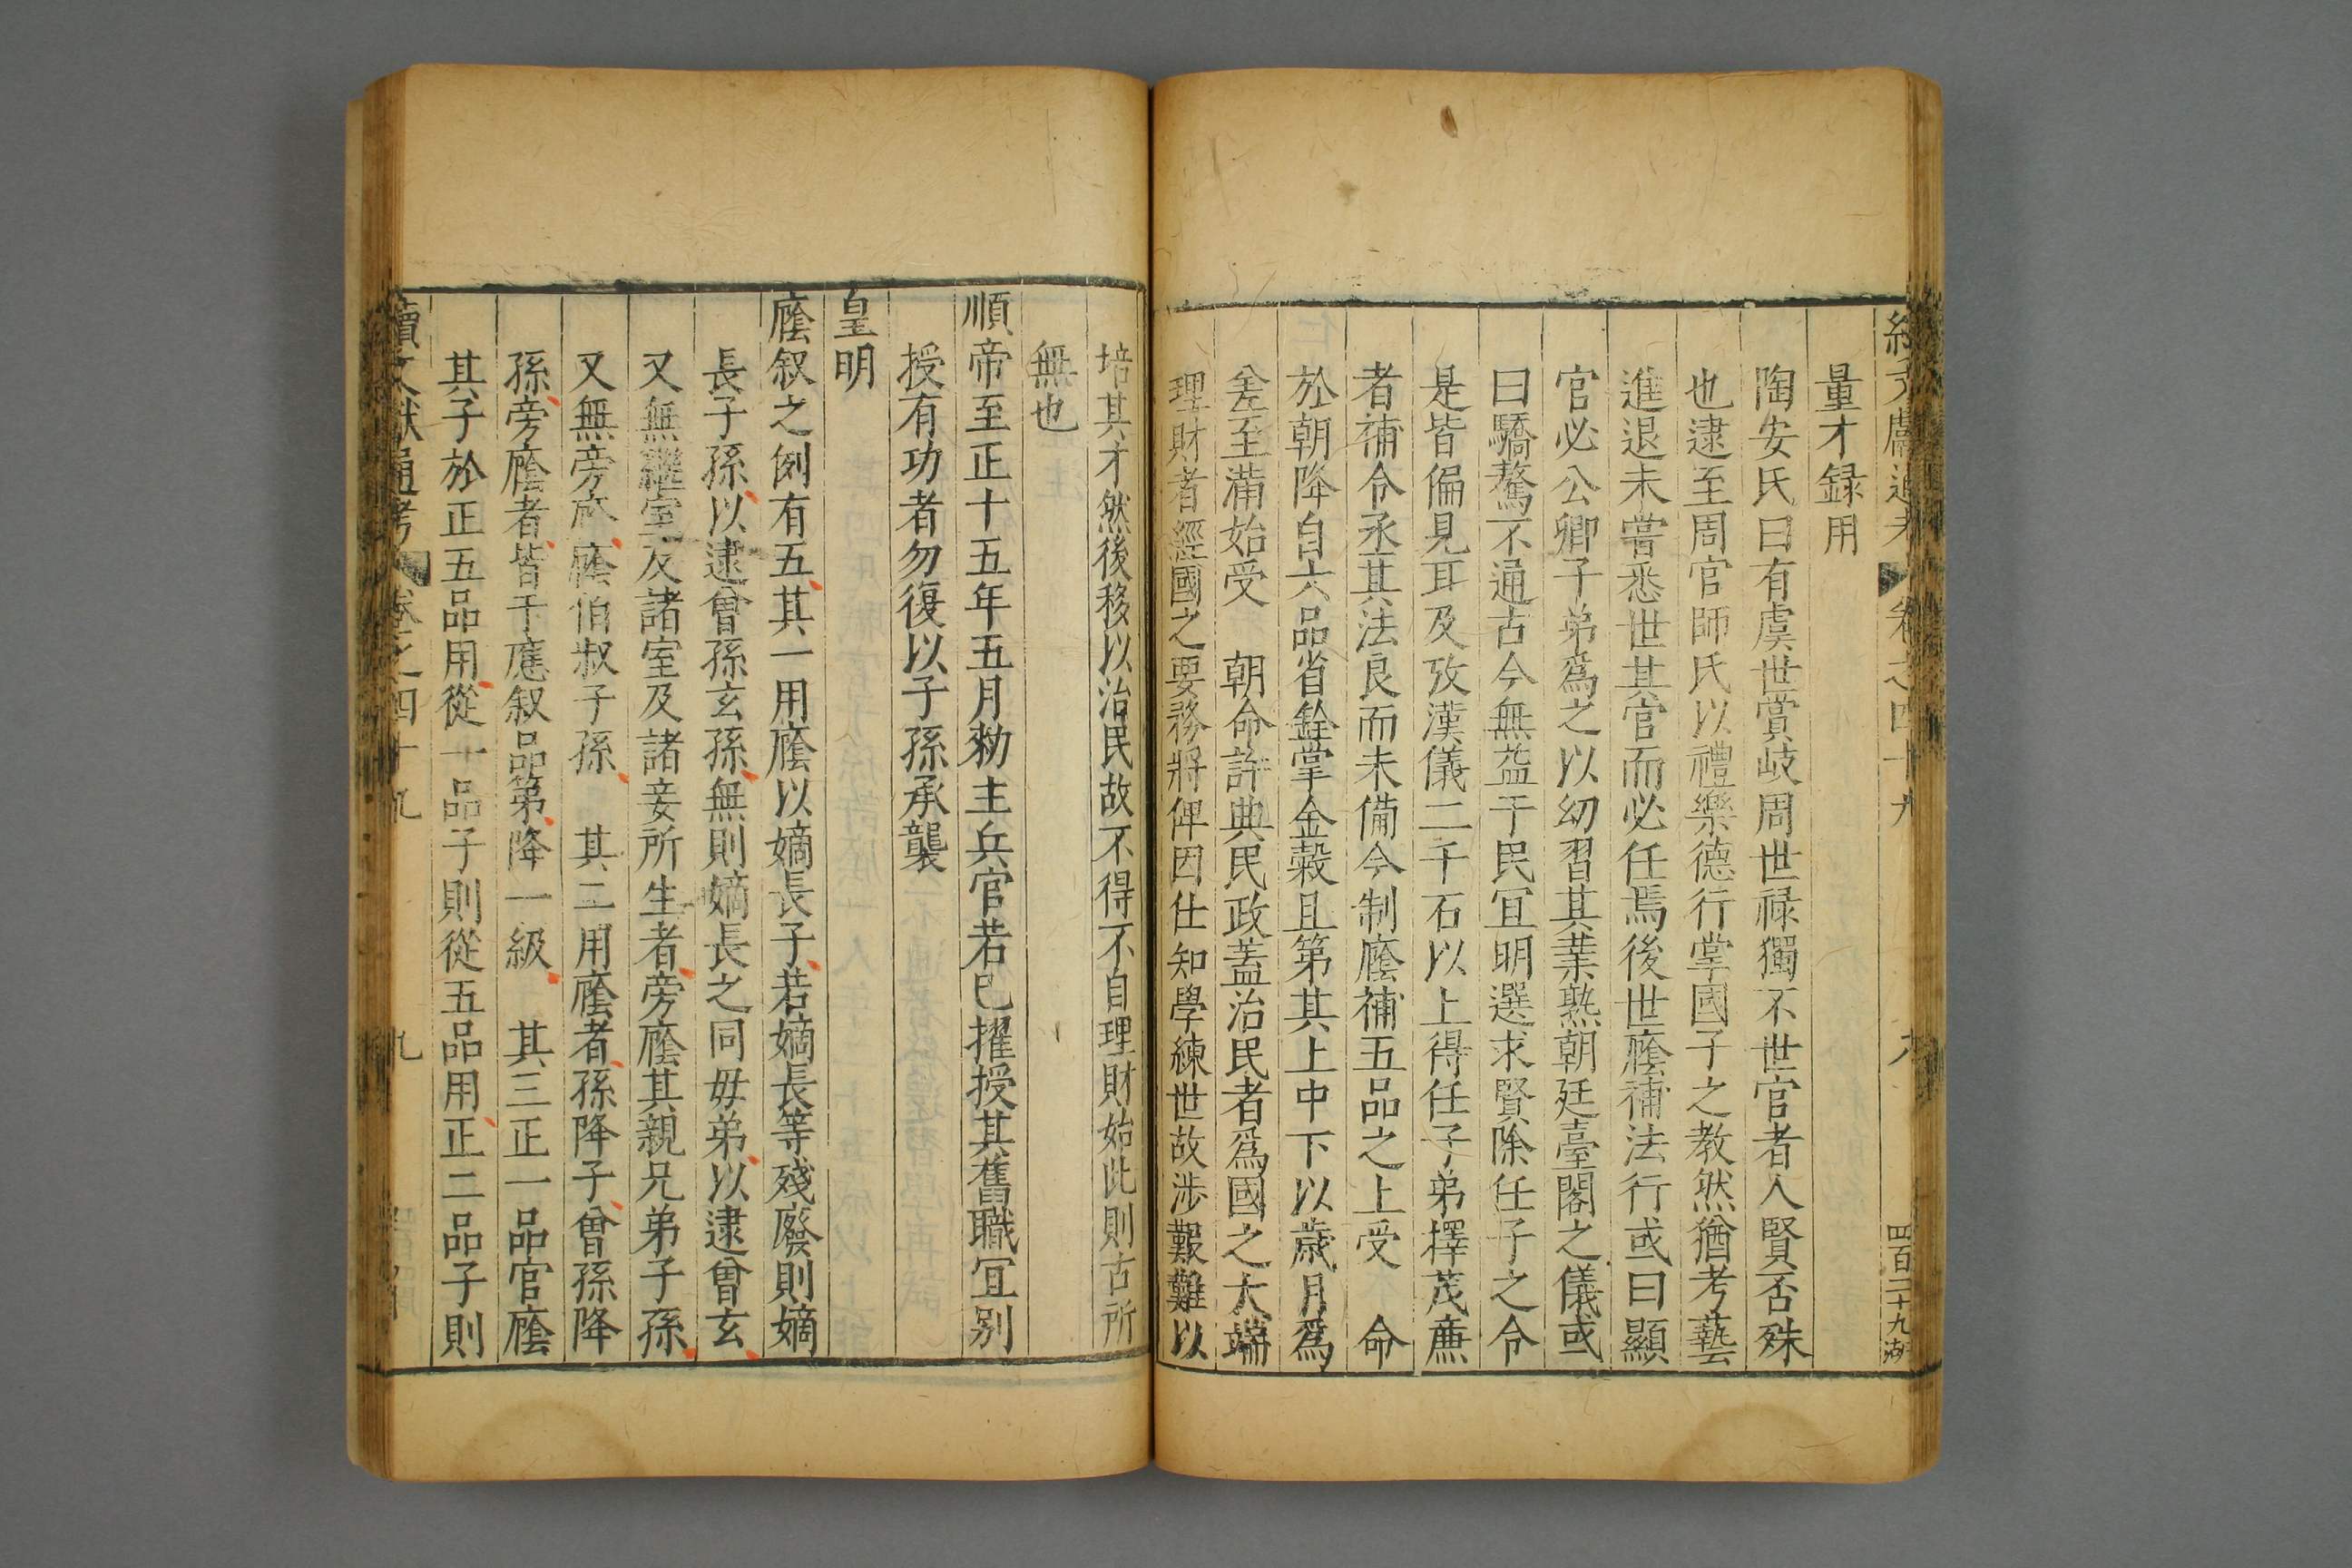 量才録用
陶安氏曰有虞世賞岐周世禄獨不世官者人賢否殊
也逮至周官師氏以禮樂德行掌國子之教然猶考藝
進退未嘗悉世其官而必任焉後世廕補法行或曰顯
官必公卿子弟爲之以幼習其業熟朝廷臺閣之儀或
曰驕驁不通古今無益于民冝明選求賢除任子之令
是皆偏見耳及攷漢儀二千石以上得任子弟擇茂亷
者補令丞其法良而未備今制廕補五品之上受 命
於朝降自六品省銓掌金糓且第其上中下以歲月爲
差至滿始受 朝命許典民政蓋治民者爲國之大端
理財者經國之要務將俾因仕知學練世故涉艱難以
四百二十九
培其才然後移以治民故不得不自理財始此則古所
無也
順帝至正十五年五月勑主兵官若已擢授其舊職冝别
授有功者勿復以子孫承襲
皇明
廕叙之例有五其一用廕以嫡長子若嫡長等殘廢則嫡
長子孫以逮曾孫玄孫無則嫡長之同毋弟以逮曾玄
又無繼室及諸室及諸妾所生者旁廕其親兄弟子孫
又無旁廕伯叔子孫 其二用廕者孫降子曾孫降
孫旁廕者皆于應叙品第降一級 其三正一品官廕
其子於正五品用從一品子則從五品用正二品子則
續文獻通考 卷之四十九 九